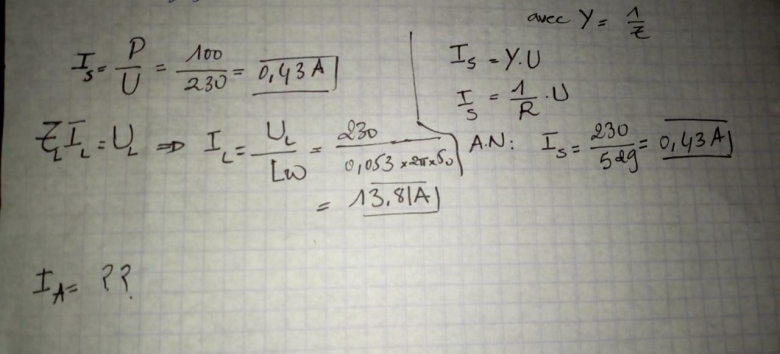 avec Y = 1/Z
I_S = P/U = 100/230 = 0,43 A
I_S = Y.U
I_S = 1/R . U
Z_L I_L = U_L => I_L = U_L/Lω = 230/(0,053 × 2π × 50)
= 13,81 A
A.N: I_S = 230/529 = 0,43 A
I_A = ??